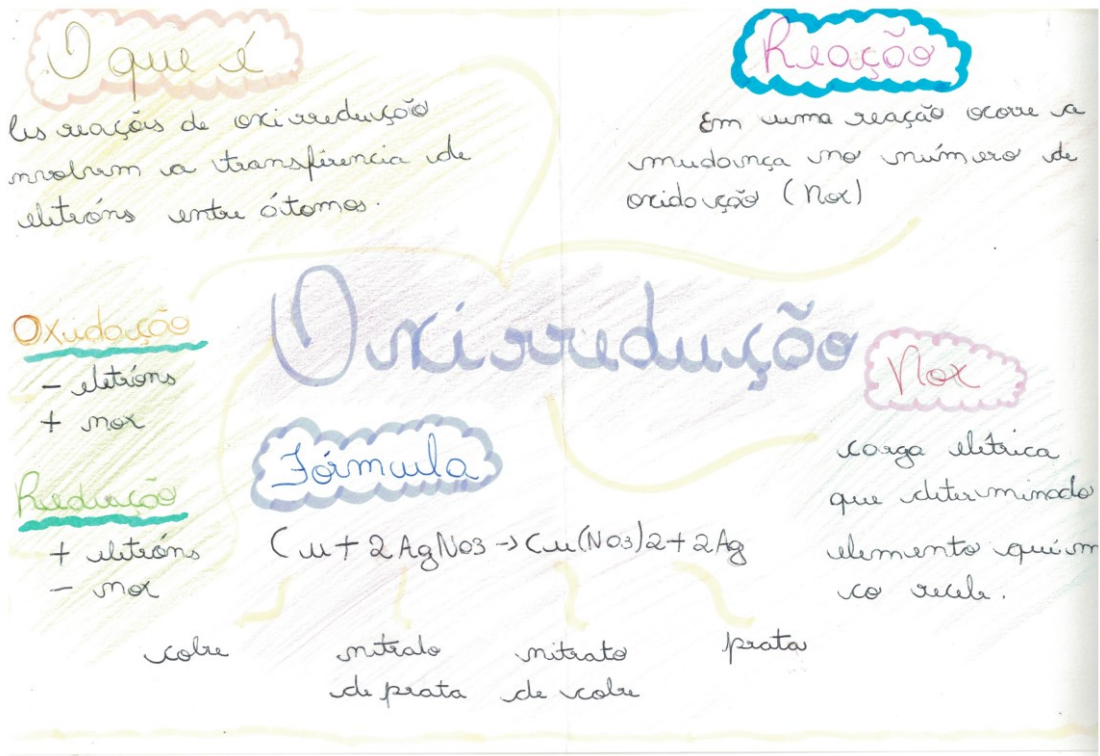 O que é
As reações de oxirredução
nvolvem a transferencia de
eletróns entre átomos.
Reação
Em uma reação ocorre a
mudança no número de
oxidação (Nox)
Oxirredução
Oxidação
- eletróns
+ nox
Redução
+ eletróns
- nox
Fórmula
Cu + 2 AgNO3 → Cu(NO3)2 + 2Ag
cobre
nitrato
de prata
nitrato
de cobre
prata
Nox
carga elétrica
que determinado
elemento quím
co recebe.